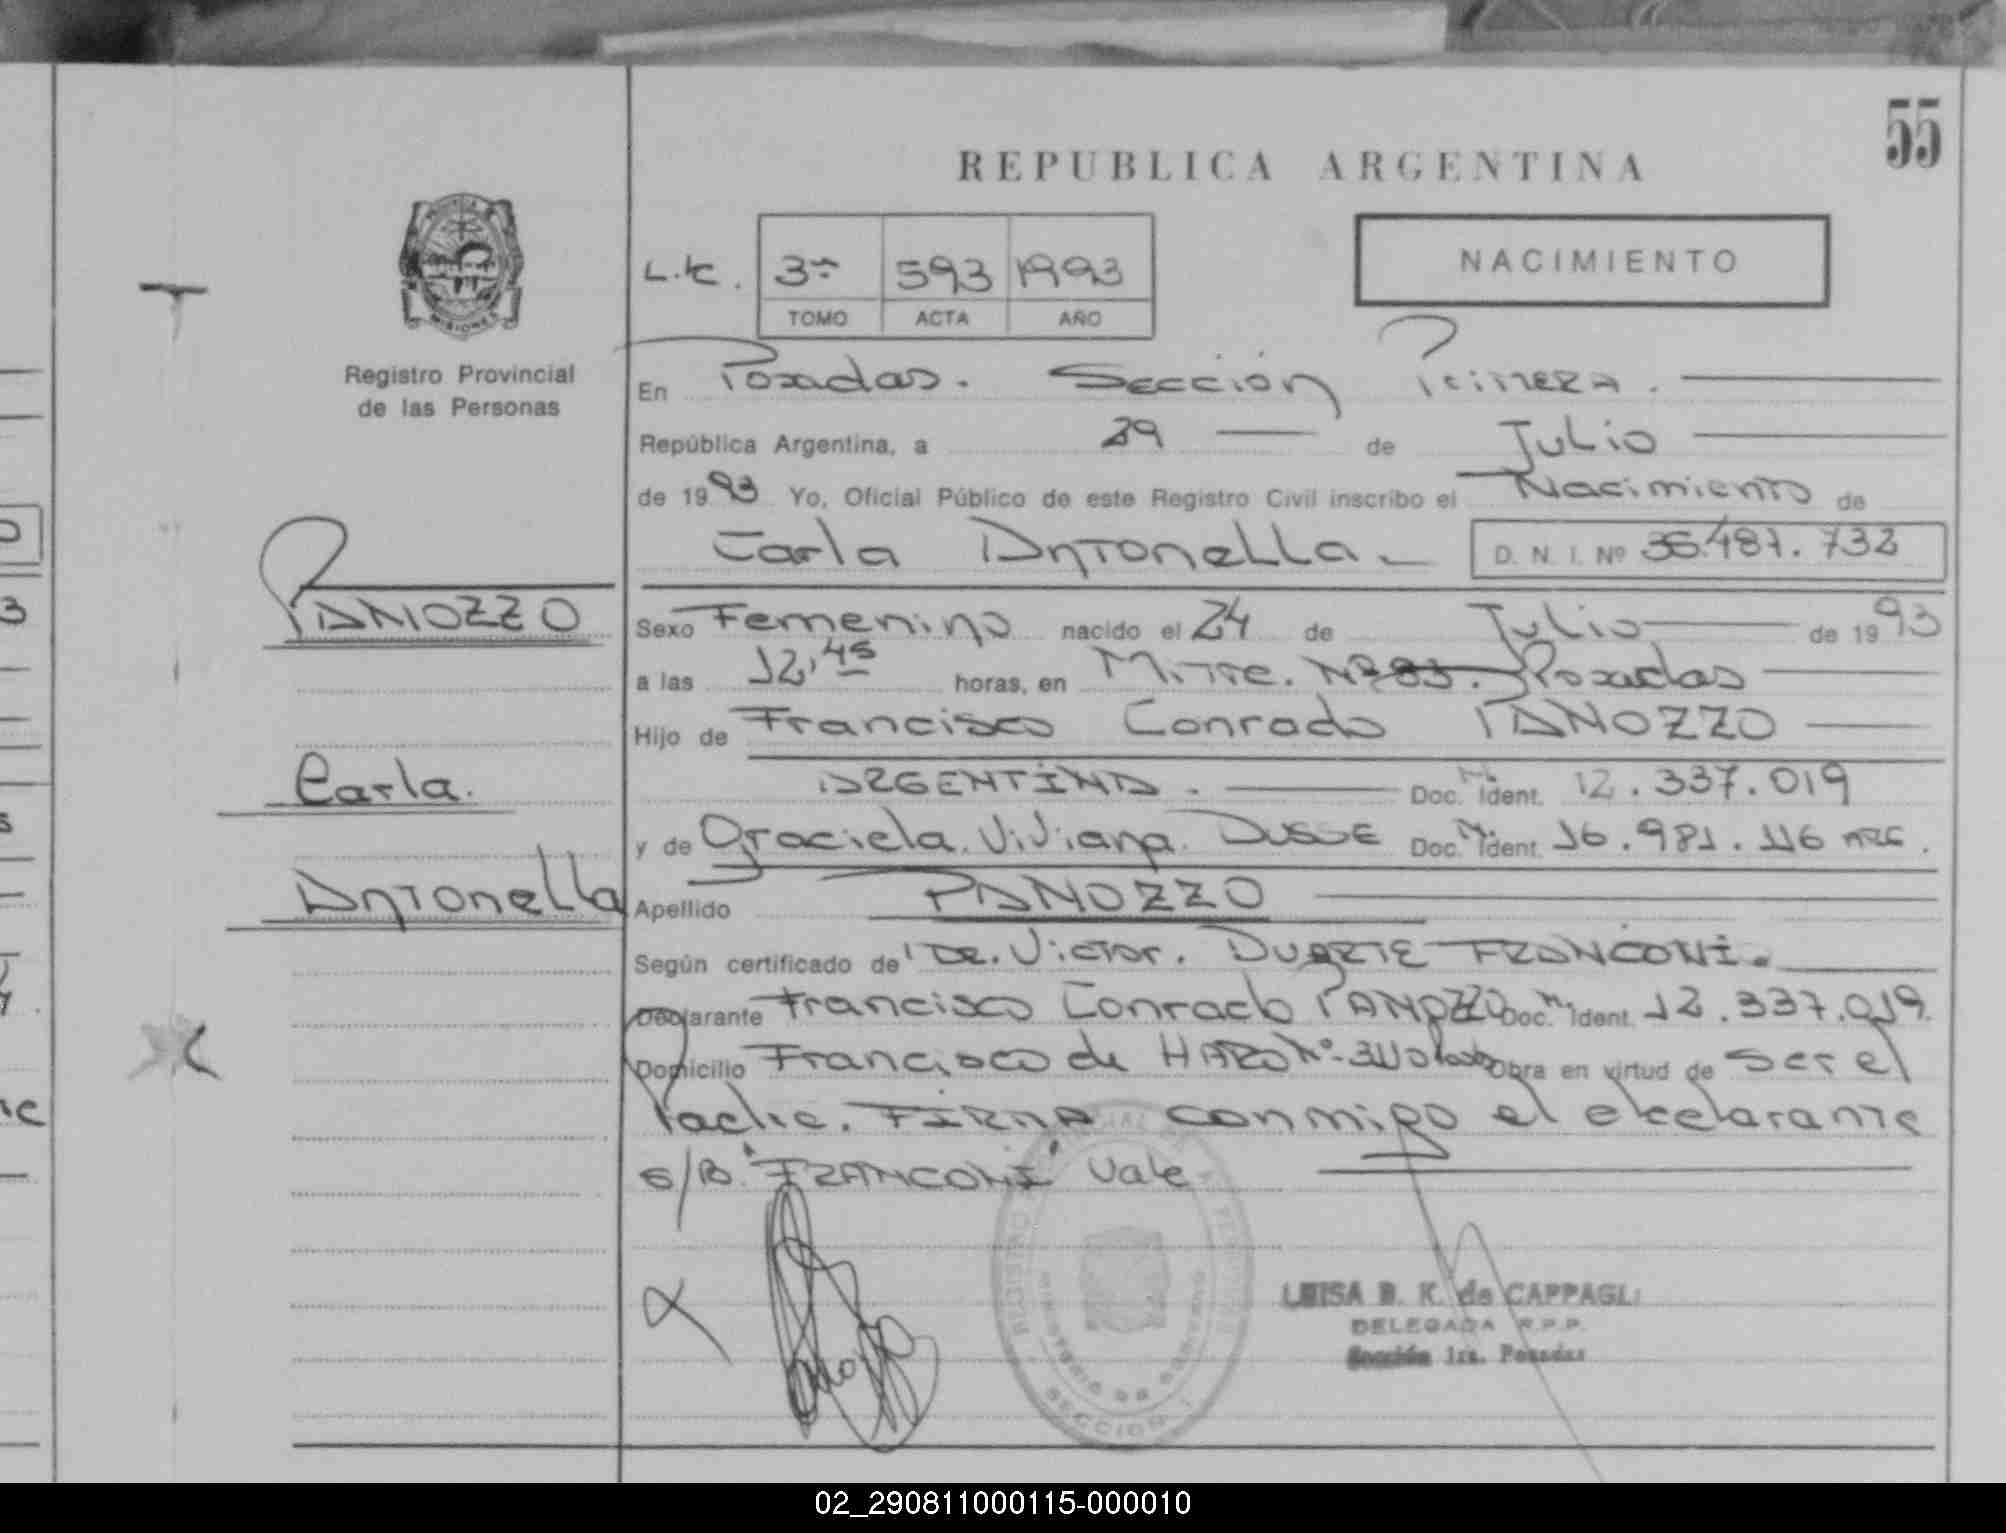 55
REPUBLICA ARGENTINA
MISIONES
Registro Provincial
de las Personas
NACIMIENTO
3ro 593 1993
TOMO ACTA AÑO
En Posadas. Sección Primera.
República Argentina, a 29 de Julio
de 1993 Yo, Oficial Público de este Registro Civil inscribo el Nacimiento de
Carla Antonella. D. N. I. Nº 487.732
PANOZZO
Carla.
Antonella
Sexo Femenino nacido el 24 de Julio de 1993
a las 12,45 horas, en Mitre. Nº 83. Posadas
Hijo de Francisco Conrado PANOZZO
ARGENTINA. Doc. Ident. 12.337.019
y de Graciela. Viviana. DUSSE Doc. Ident. 16.981.116 ARG.
Apellido PANOZZO
Según certificado de DR. Victor. DUARTE FRANCONI.
Declarante Francisco Conrado PANOZZO Doc. Ident. 12.337.019.
Domicilio Francisco de HARO Nº Obra en virtud de ser el
Padre. FIRMA conmigo el declarante
S/B. "FRANCONI" Vale
LUISA B. K. de CAPPAGLI
DELEGADA R.P.P.
Sección 1ra. Posadas
02_290811000115-000010